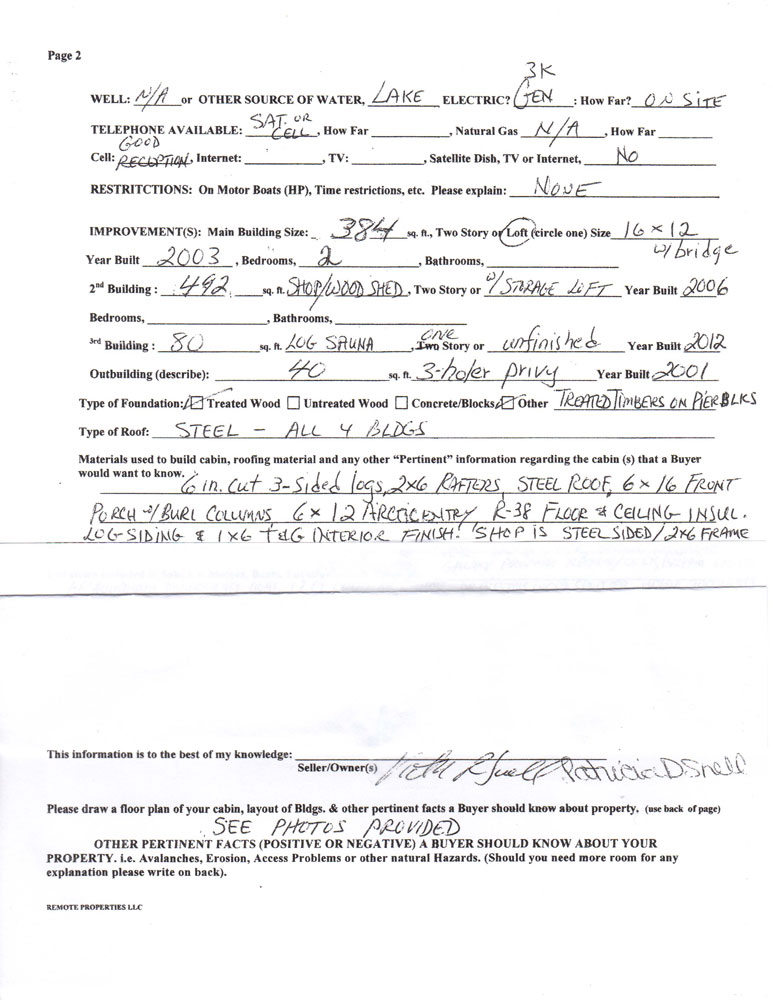 Page 2
3K
WELL: N/A or OTHER SOURCE OF WATER, LAKE ELECTRIC? GEN : How Far? ON SITE
TELEPHONE AVAILABLE: SAT. OR CELL, How Far , Natural Gas N/A , How Far
GOOD
Cell: RECEPTION, Internet: , TV: , Satellite Dish, TV or Internet, No
RESTRITCTIONS: On Motor Boats (HP), Time restrictions, etc. Please explain: NONE
IMPROVEMENT(S): Main Building Size: 384 sq. ft., Two Story or Loft (circle one) Size 16 x 12
w/bridge
Year Built 2003 , Bedrooms, 2 , Bathrooms,
2nd Building : 492 sq. ft. SHOP/WOOD SHED, Two Story or w/ STORAGE LOFT Year Built 2006
Bedrooms, , Bathrooms,
ONE
3rd Building : 80 sq. ft. LOG SAUNA , Two Story or unfinished Year Built 2012
Outbuilding (describe): 40 sq. ft. 3-holer privy Year Built 2001
Type of Foundation: Treated Wood Untreated Wood Concrete/Blocks Other TREATED TIMBERS ON PIER BLKS
Type of Roof: STEEL - ALL 4 BLDGS
Materials used to build cabin, roofing material and any other “Pertinent” information regarding the cabin (s) that a Buyer
would want to know. 6 in. cut 3-sided logs, 2x6 RAFTERS, STEEL ROOF, 6 x 16 FRONT
PORCH w/ BURL COLUMNS 6 x 12 ARCTIC ENTRY R-38 FLOOR & CEILING INSUL.
LOG SIDING & 1x6 T&G INTERIOR FINISH. SHOP IS STEEL SIDED/2x6 FRAME
This information is to the best of my knowledge:
Seller/Owner(s) Patricia D. Snell
Please draw a floor plan of your cabin, layout of Bldgs. & other pertinent facts a Buyer should know about property. (use back of page)
SEE PHOTOS PROVIDED
OTHER PERTINENT FACTS (POSITIVE OR NEGATIVE) A BUYER SHOULD KNOW ABOUT YOUR
PROPERTY. i.e. Avalanches, Erosion, Access Problems or other natural Hazards. (Should you need more room for any
explanation please write on back).
REMOTE PROPERTIES LLC